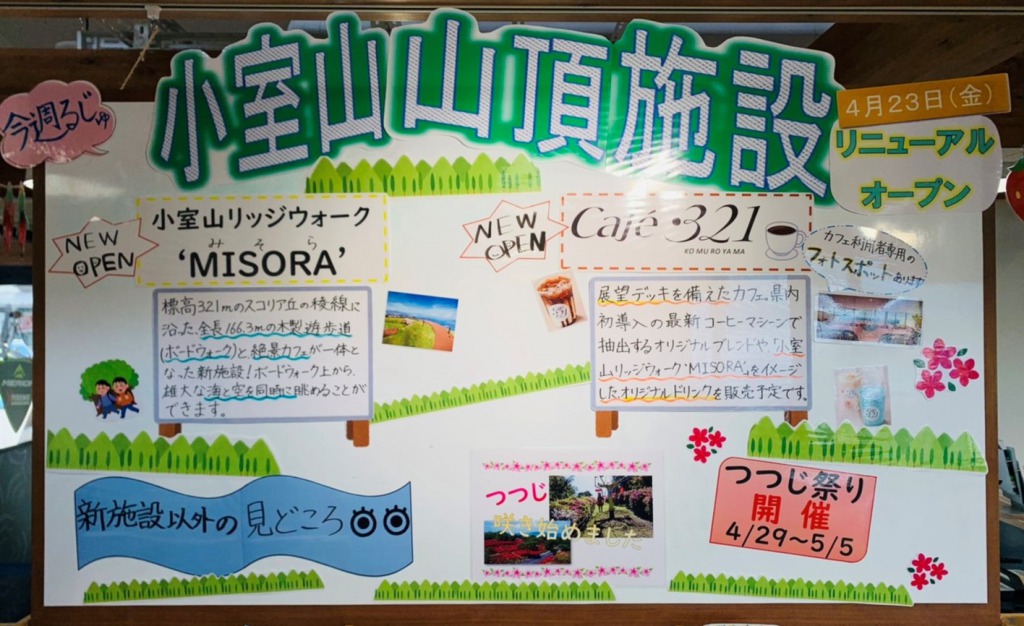 今週るじゅ
小室山山頂施設
4月23日(金)
リニューアル
オープン
NEW
OPEN
小室山リッジウォーク
みそら
'MISORA'
標高321mのスコリア丘の稜線に
沿った全長166.3mの木製遊歩道
(ボードウォーク)と、絶景カフェが一体と
なった新施設!ボードウォーク上から、
雄大な海と空を同時に眺めることが
できます。
NEW
OPEN
Café・321
KOMUROYAMA
カフェ利用者専用の
フォトスポットあります
展望デッキを備えたカフェ。県内
初導入の最新コーヒーマシーンで
抽出するオリジナルブレンドや、「小室
山リッジウォーク'MISORA'」をイメージ
したオリジナルドリンクを販売予定です。
新施設以外の見どころ
つつじ
咲き始めました
つつじ祭り
開催
4/29~5/5